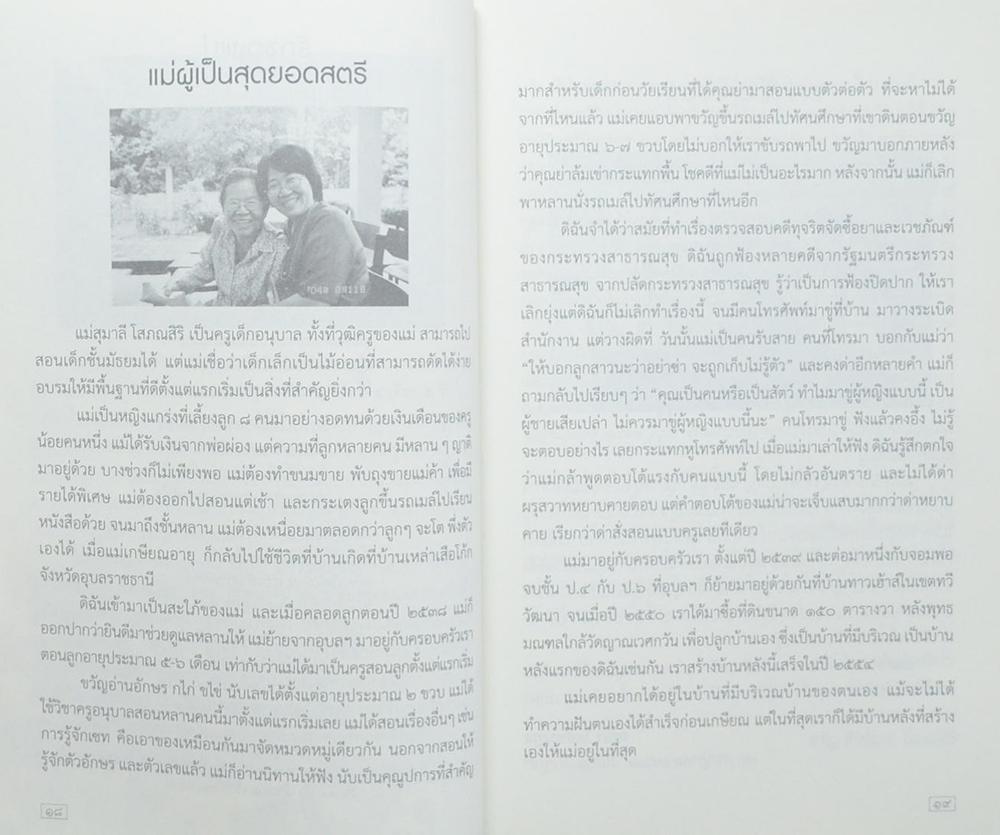 แม่ผู้เป็นสุดยอดสตรี
แม่สุมาลี โสภณสิริ เป็นครูเด็กอนุบาล ทั้งที่วุฒิครูของแม่ สามารถไป
สอนเด็กชั้นมัธยมได้ แต่แม่เชื่อว่าเด็กเล็กเป็นไม้อ่อนที่สามารถดัดได้ง่าย
อบรมให้มีพื้นฐานที่ดีตั้งแต่แรกเริ่มเป็นสิ่งที่สำคัญยิ่งกว่า
แม่เป็นหญิงแกร่งที่เลี้ยงลูก ๘ คนมาอย่างอดทนด้วยเงินเดือนของครู
น้อยคนหนึ่ง แม้ได้รับเงินจากพ่อผ่อง แต่ความที่ลูกหลายคน มีหลาน ๆ ญาติ
มาอยู่ด้วย บางช่วงก็ไม่เพียงพอ แม่ต้องทำขนมขาย พับถุงขายแม่ค้า เพื่อมี
รายได้พิเศษ แม่ต้องออกไปสอนแต่เช้า และกระเตงลูกขึ้นรถเมล์ไปเรียน
หนังสือด้วย จนมาถึงชั้นหลาน แม่ต้องเหนื่อยมาตลอดกว่าลูกๆ จะโต พึ่งตัว
เองได้ เมื่อแม่เกษียณอายุ ก็กลับไปใช้ชีวิตที่บ้านเกิดที่บ้านเหล่าเสือโก้ก
จังหวัดอุบลราชธานี
ดิฉันเข้ามาเป็นสะใภ้ของแม่ และเมื่อคลอดลูกตอนปี ๒๕๓๘ แม่ก็
ออกปากว่ายินดีมาช่วยดูแลหลานให้ แม่ย้ายจากอุบลฯ มาอยู่กับครอบครัวเรา
ตอนลูกอายุประมาณ ๕-๖ เดือน เท่ากับว่าแม่ได้มาเป็นครูสอนลูกตั้งแต่แรกเริ่ม
ขวัญอ่านอักษร กไก่ ขไข่ นับเลขได้ตั้งแต่อายุประมาณ ๒ ขวบ แม่ได้
ใช้วิชาครูอนุบาลสอนหลานคนนี้มาตั้งแต่แรกเริ่มเลย แม่ได้สอนเรื่องอื่นๆ เช่น
การรู้จักเซท คือเอาของเหมือนกันมาจัดหมวดหมู่เดียวกัน นอกจากสอนให้
รู้จักตัวอักษร และตัวเลขแล้ว แม่ก็อ่านนิทานให้ฟัง นับเป็นคุณูปการที่สำคัญ
๑๘
มากสำหรับเด็กก่อนวัยเรียนที่ได้คุณย่ามาสอนแบบตัวต่อตัว ที่จะหาไม่ได้
จากที่ไหนแล้ว แม่เคยแอบพาขวัญขึ้นรถเมล์ไปทัศนศึกษาที่เขาดินตอนขวัญ
อายุประมาณ ๖-๗ ขวบโดยไม่บอกให้เราขับรถพาไป ขวัญมาบอกภายหลัง
ว่าคุณย่าล้มเข่ากระแทกพื้น โชคดีที่แม่ไม่เป็นอะไรมาก หลังจากนั้น แม่ก็เลิก
พาหลานนั่งรถเมล์ไปทัศนศึกษาที่ไหนอีก
ดิฉันจำได้ว่าสมัยที่ทำเรื่องตรวจสอบคดีทุจริตจัดซื้อยาและเวชภัณฑ์
ของกระทรวงสาธารณสุข ดิฉันถูกฟ้องหลายคดีจากรัฐมนตรีกระทรวง
สาธารณสุข จากปลัดกระทรวงสาธารณสุข รู้ว่าเป็นการฟ้องปิดปาก ให้เรา
เลิกยุ่งแต่ดิฉันก็ไม่เลิกทำเรื่องนี้ จนมีคนโทรศัพท์มาขู่ที่บ้าน มาวางระเบิด
สำนักงาน แต่วางผิดที่ วันนั้นแม่เป็นคนรับสาย คนที่โทรมา บอกกับแม่ว่า
“ให้บอกลูกสาวนะว่าอย่าซ่า จะถูกเก็บไม่รู้ตัว” และคงด่าอีกหลายคำ แม่ก็
ถามกลับไปเรียบๆ ว่า “คุณเป็นคนหรือเป็นสัตว์ ทำไมมาขู่ผู้หญิงแบบนี้ เป็น
ผู้ชายเสียเปล่า ไม่ควรมาขู่ผู้หญิงแบบนี้นะ” คนโทรมาขู่ ฟังแล้วคงอึ้ง ไม่รู้
จะตอบอย่างไร เลยกระแทกหูโทรศัพท์ไป เมื่อแม่มาเล่าให้ฟัง ดิฉันรู้สึกตกใจ
ว่าแม่กล้าพูดตอบโต้แรงกับคนแบบนี้ โดยไม่กลัวอันตราย และไม่ได้ด่า
ผรุสวาทหยาบคายตอบ แต่คำตอบโต้ของแม่น่าจะเจ็บแสบมากกว่าด่าหยาบ
คาย เรียกว่าด่าสั่งสอนแบบครูเลยทีเดียว
แม่มาอยู่กับครอบครัวเรา ตั้งแต่ปี ๒๕๓๙ และต่อมาหนึ่งกับจอมพอ
จบชั้น ป.๔ กับ ป.๖ ที่อุบลฯ ก็ย้ายมาอยู่ด้วยกันที่บ้านทาวเฮ้าส์ในเขตทวี
วัฒนา จนเมื่อปี ๒๕๕๐ เราได้มาซื้อที่ดินขนาด ๑๕๐ ตารางวา หลังพุทธ
มณฑลใกล้วัดญาณเวศกวัน เพื่อปลูกบ้านเอง ซึ่งเป็นบ้านที่มีบริเวณ เป็นบ้าน
หลังแรกของดิฉันเช่นกัน เราสร้างบ้านหลังนี้เสร็จในปี ๒๕๕๔
แม่เคยอยากได้อยู่ในบ้านที่มีบริเวณบ้านของตนเอง แม้จะไม่ได้
ทำความฝันตนเองได้สำเร็จก่อนเกษียณ แต่ในที่สุดเราก็ได้มีบ้านหลังที่สร้าง
เองให้แม่อยู่ในที่สุด
๑๙